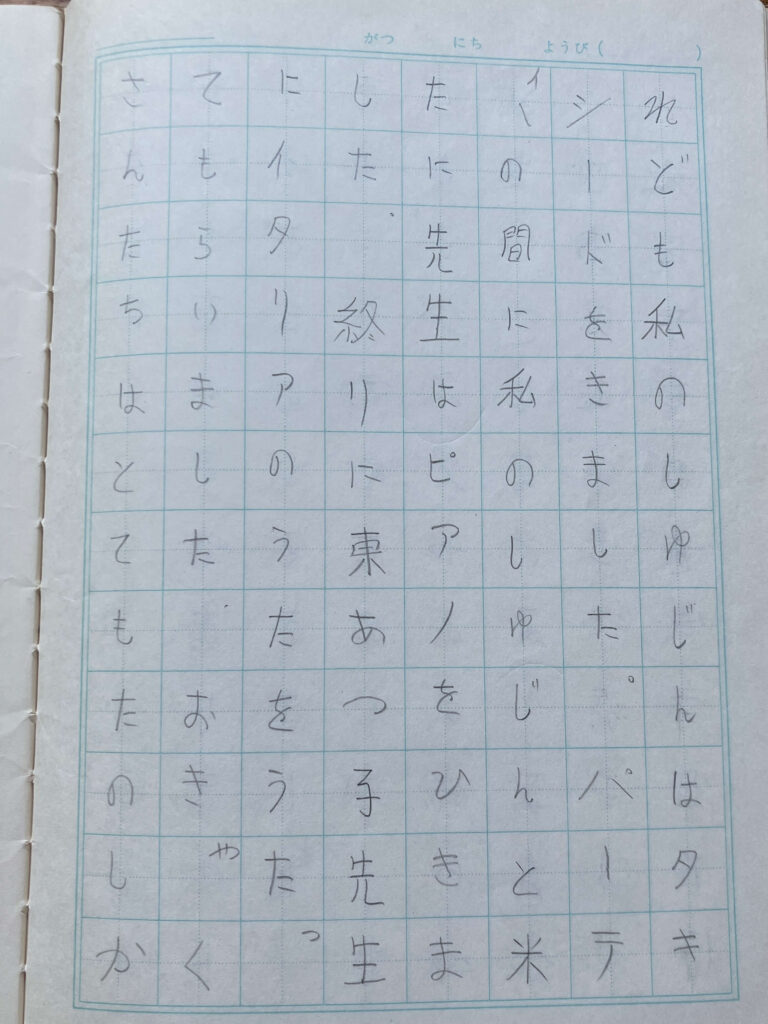 がつ にち ようび( )
れども私のしゅじんはタキ
シードをきました。パーテ
ィーの間に私のしゅじんと米
たに先生はピアノをひきま
した。終りに東あつ子先生
にイタリアのうたをうたっ
てもらいました。おきゃく
さんたちはとてもたのしか